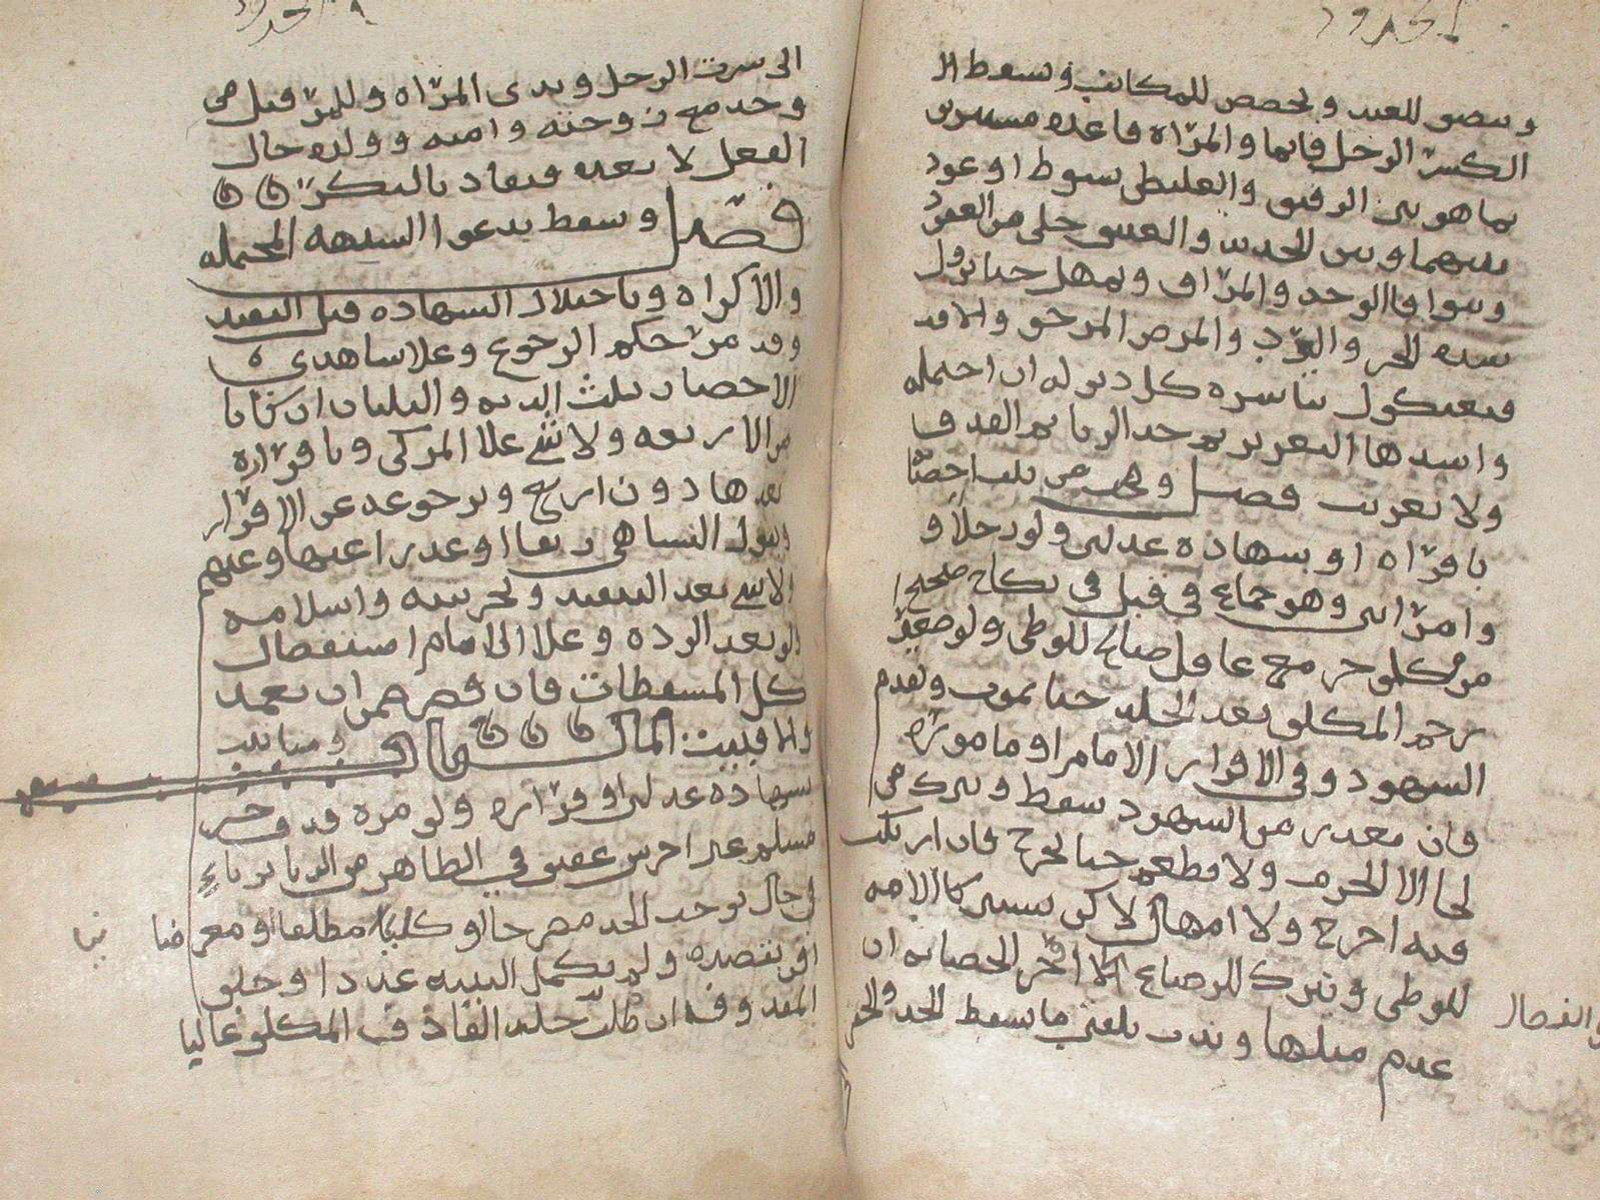 الحدود
وينصف للعبد ويحصص للمكاتب ويسقط الا
الكسر الرجل قايما والمرّاة قاعده مستترين
بما هو بين الرقيق والغليظ بسوط او عود
بينهما وبين الجديد والعتيق خلى من العقود
ويتوقا الوجه والمرّاق ويمهل حتا تزول
شده الحر والبرّد والمرض المرجو والا فد
فبعثكول تباشره كل ديوله ان احتمله
واشدها التعزير ثم حد الزنا ثم القذف
ولا تغريب فصل ومن ثبت احصّنا
باقرّاه او بشهاده عدلين ولو رجلاً و
وامرّاتين وهو جماع في قبل في نكاح صحيح
من مكلف حر مع عاقل صالح للوطى ولو صغيرّ
رجم المكلف بعد الجلد حتا يموت ويقدم
الشهود وفي الاقرار الامام او ماموره
فان تعذر من الشهود سقط ويترك من
لجا الا الحرم ولا يطعم حتا يخرج فان ارتكب
فيه اخرج ولا امهال لاكن تستبر كالامه
للوطى ويترك للرضاع الا اخر الحضانه ان
والفصال
عدم مثلها وندب تلقين ما يسقط الحد والحفر
الحدود
الى سرت الرجل وثدى المرّاه وللمرّ قتل من
وجد مع زوجته وامته وولده حال
الفعل لا بعده فيقاد بالبكرّ
فصل ويسقط بدعوا الشبهه المحتمله
والاكراه وباختلال الشهاده قبل التنفيد
وقد مرّ حكم الرجوع وعلا شاهدى
الاحصان ثلث الديه والثلثان ان كانا
من الاربعه ولا شي علا المزكى وباقرّاره
بعدها دون اربع وبرجوعه عن الاقرّار
وبقول النسا هي رتقا او عدرا عنها وعنهم
ولا شي بعد التنفيد ولخرسه واسلامه
ولو بعد الرده وعلا الامام استفصال
كل المسقطات فان قصر ضمن ان تعمد
والا فبيت المال باب ومتا ثبت
بشهاده عدلين او اقرّاره ولو مره قدف حر
مسلم غير اخرس عفيف في الظاهر من الزنا بزناءٍ
في حال يوجب الحد مصرحا او كانيا مطلقا او معرضا
نيا
اقر بقصده ولم تكمل البينه عددا وحلف
المقدوف ان طلب جلد القاذف المكلف غالبا